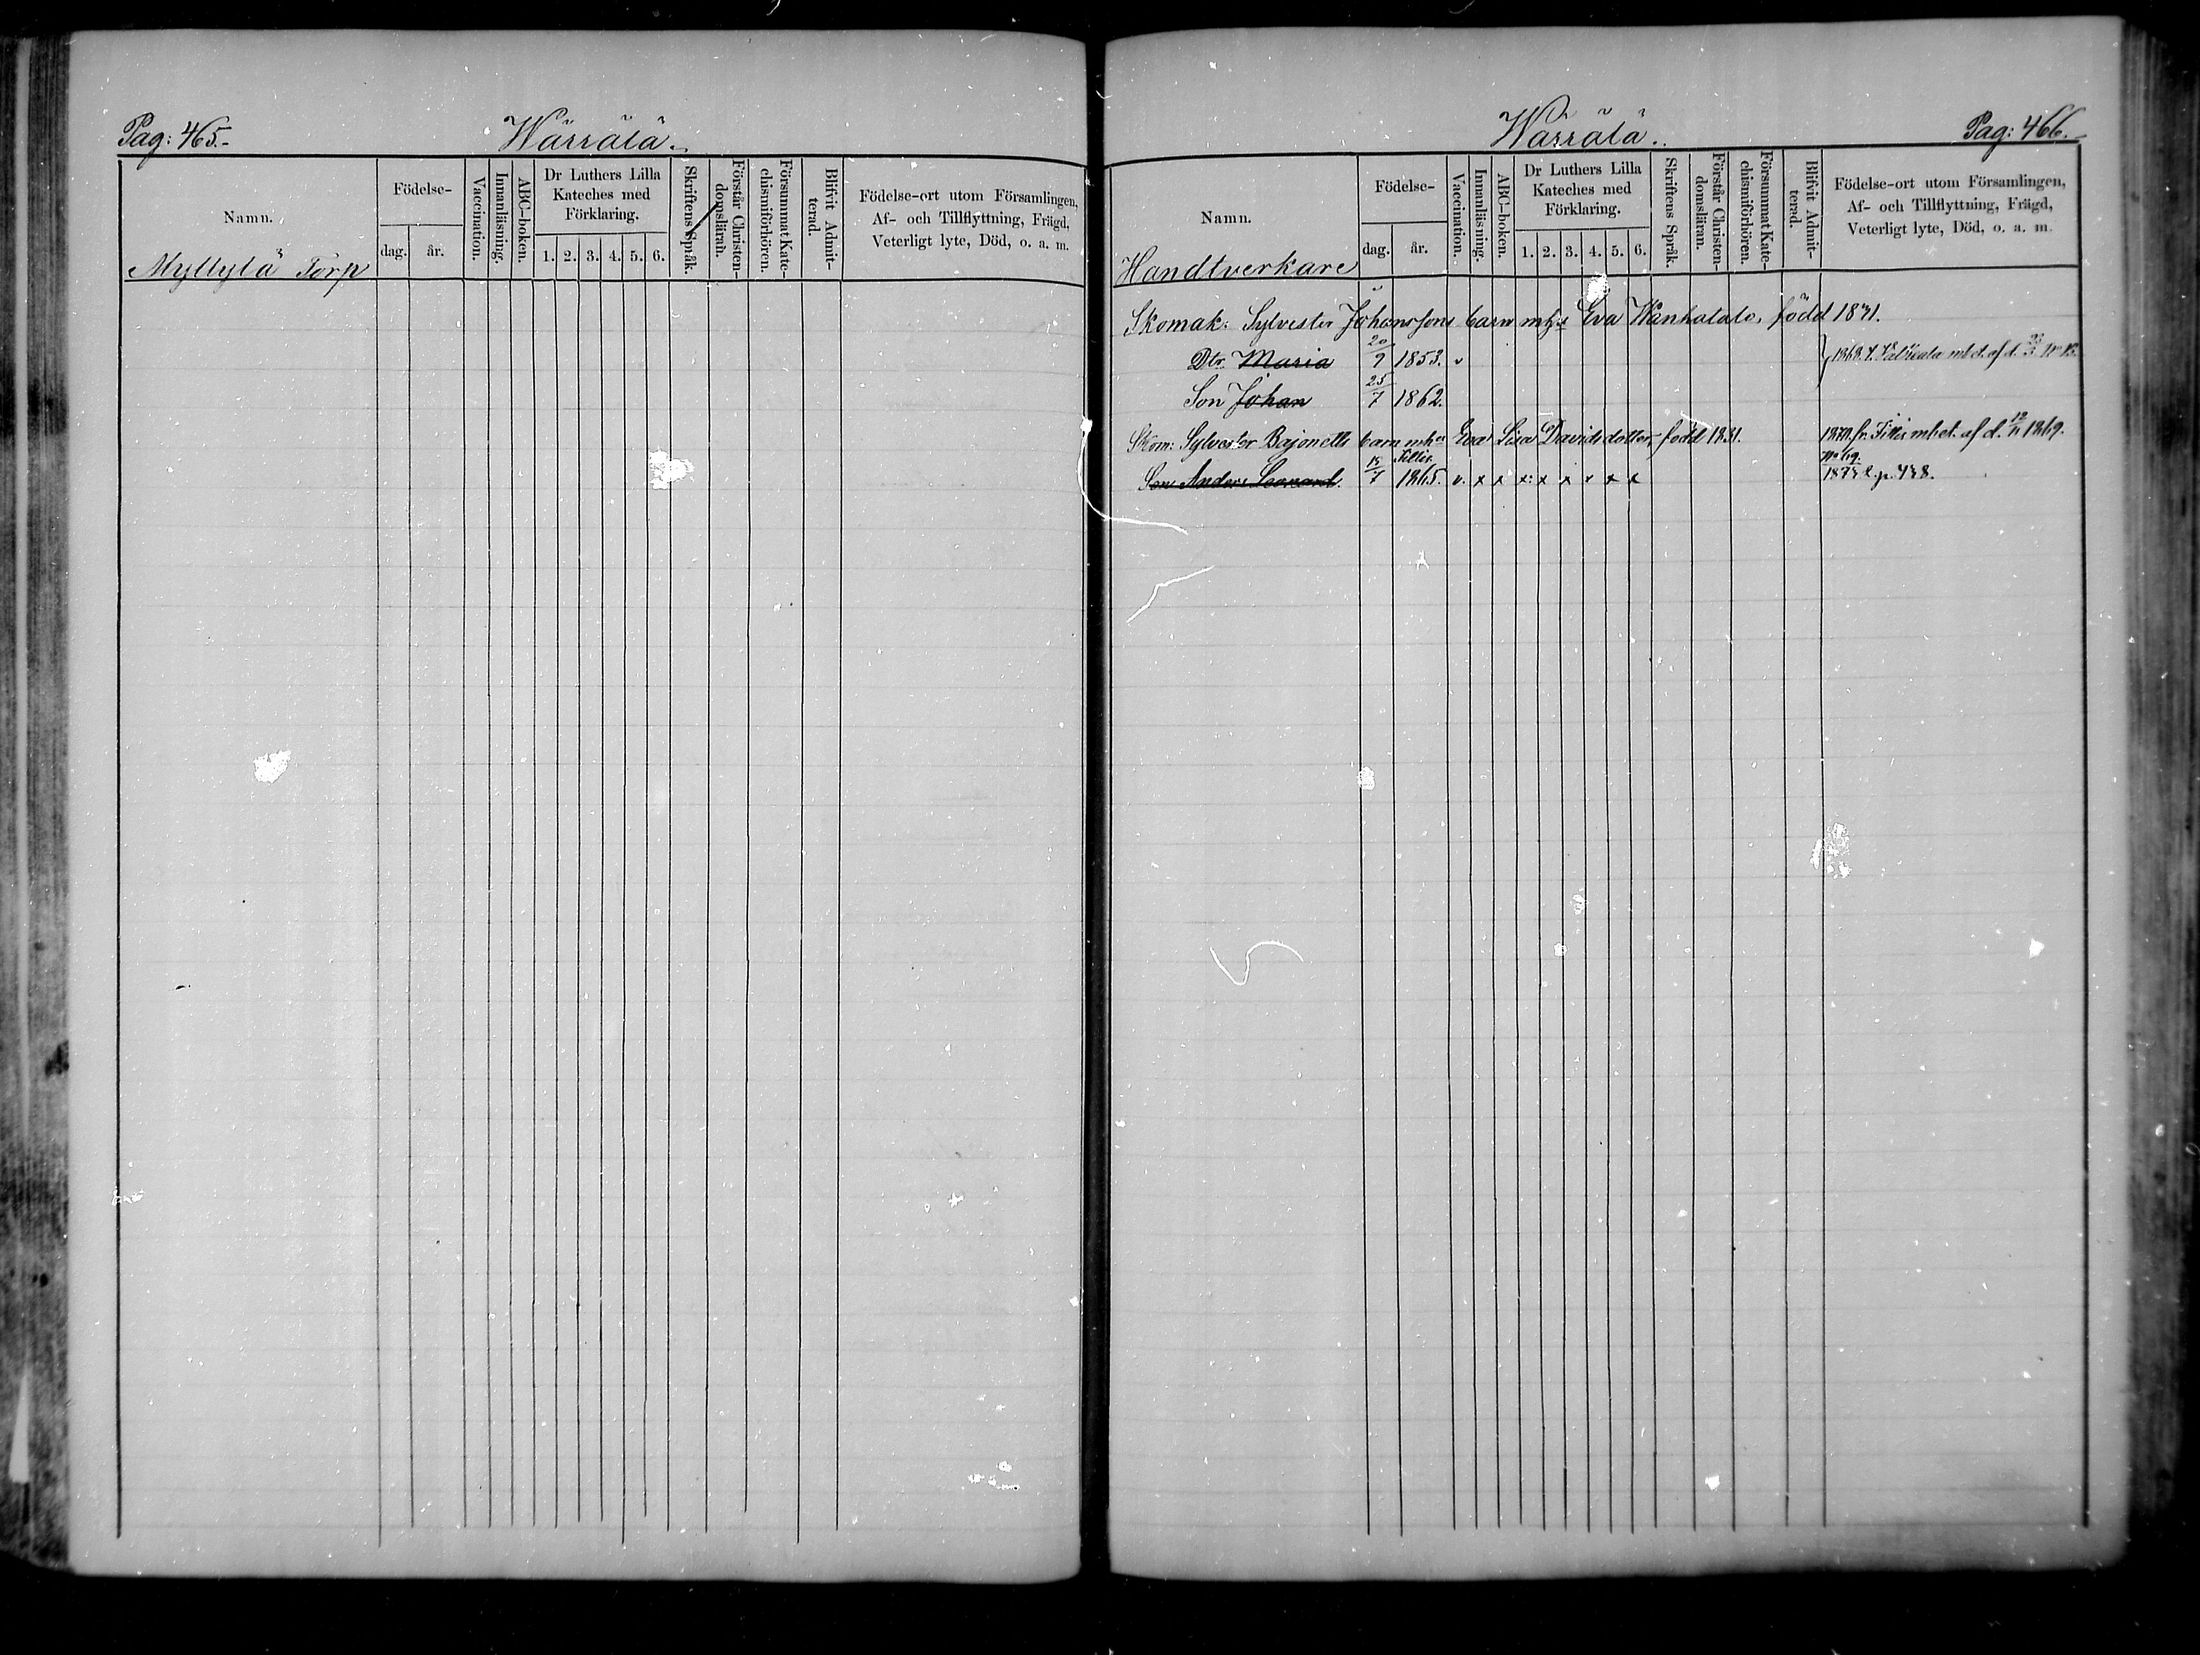 Pag: 465.-
Wärrälä.
Namn.
Födelse-
dag. år.
Vaccination.
Innanläsning.
ABC-boken.
Dr Luthers Lilla
Kateches med
Förklaring.
1. 2. 3. 4. 5. 6.
Skriftens Språk.
Förstår Christen-
domsläran.
Försummat Kate-
chismiförhören.
Blifvit Admit-
terad.
Födelse-ort utom Församlingen,
Af- och Tillflyttning, Frägd,
Veterligt lyte, Död, o. a. m.
Myllylä Torp
Wärrälä.
Pag: 466.
Namn.
Födelse-
dag. år.
Vaccination.
Innanläsning.
ABC-boken.
Dr Luthers Lilla
Kateches med
Förklaring.
1. 2. 3. 4. 5. 6.
Skriftens Språk.
Förstår Christen-
domsläran.
Försummat Kate-
chismiförhören.
Blifvit Admit-
terad.
Födelse-ort utom Församlingen,
Af- och Tillflyttning, Frägd,
Veterligt lyte, Död, o. a. m.
Handtverkare
Skomak: Sylvester Johanssons barn Eva Wanhatalo, född 1831.
Dtr. Maria 20/9 1853. v 1868. t. mbet. af d.
Son Johan 25/7 1862.
Skom: Sylvester Bajonetts barn Eva Lisa Davidsdotter född 1831. 1870. fr. mbet. af d. 12/11 1869.
No 69.
Son Anders Leonard. 15/7 1865. v. x x x x x x x x p. 438.